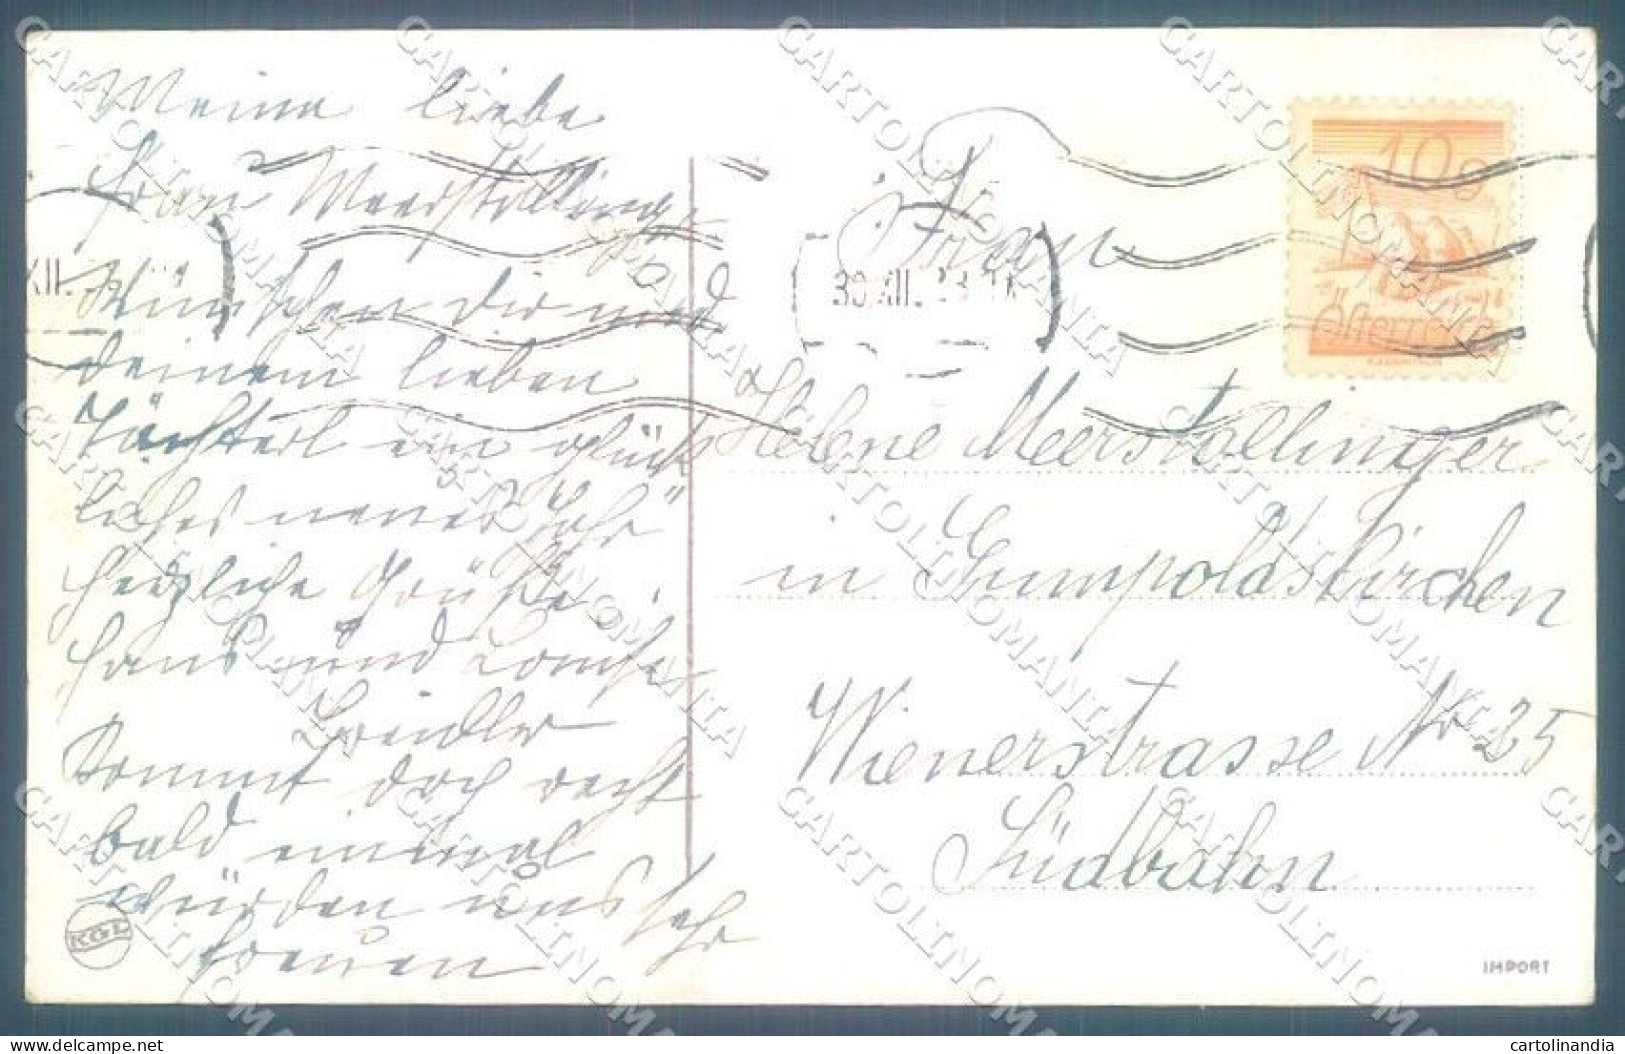 Meine liebe
Frau Meerstallinger
Wünschen dir und
deinem lieben
Töchterl ein glück
liches neues Jahr
herzliche Grüße
Hans und Louise
Kommt doch recht
bald einmal
würden uns sehr
freuen
Frau
Helene Meerstallinger
in Gumpoldskirchen
Wienerstrasse Nr 25
Südbahn
10g
Österreich
30.XII.
XII.
IMPORT
CARTOLINOMANIA
www.delcampe.net
cartolinandia